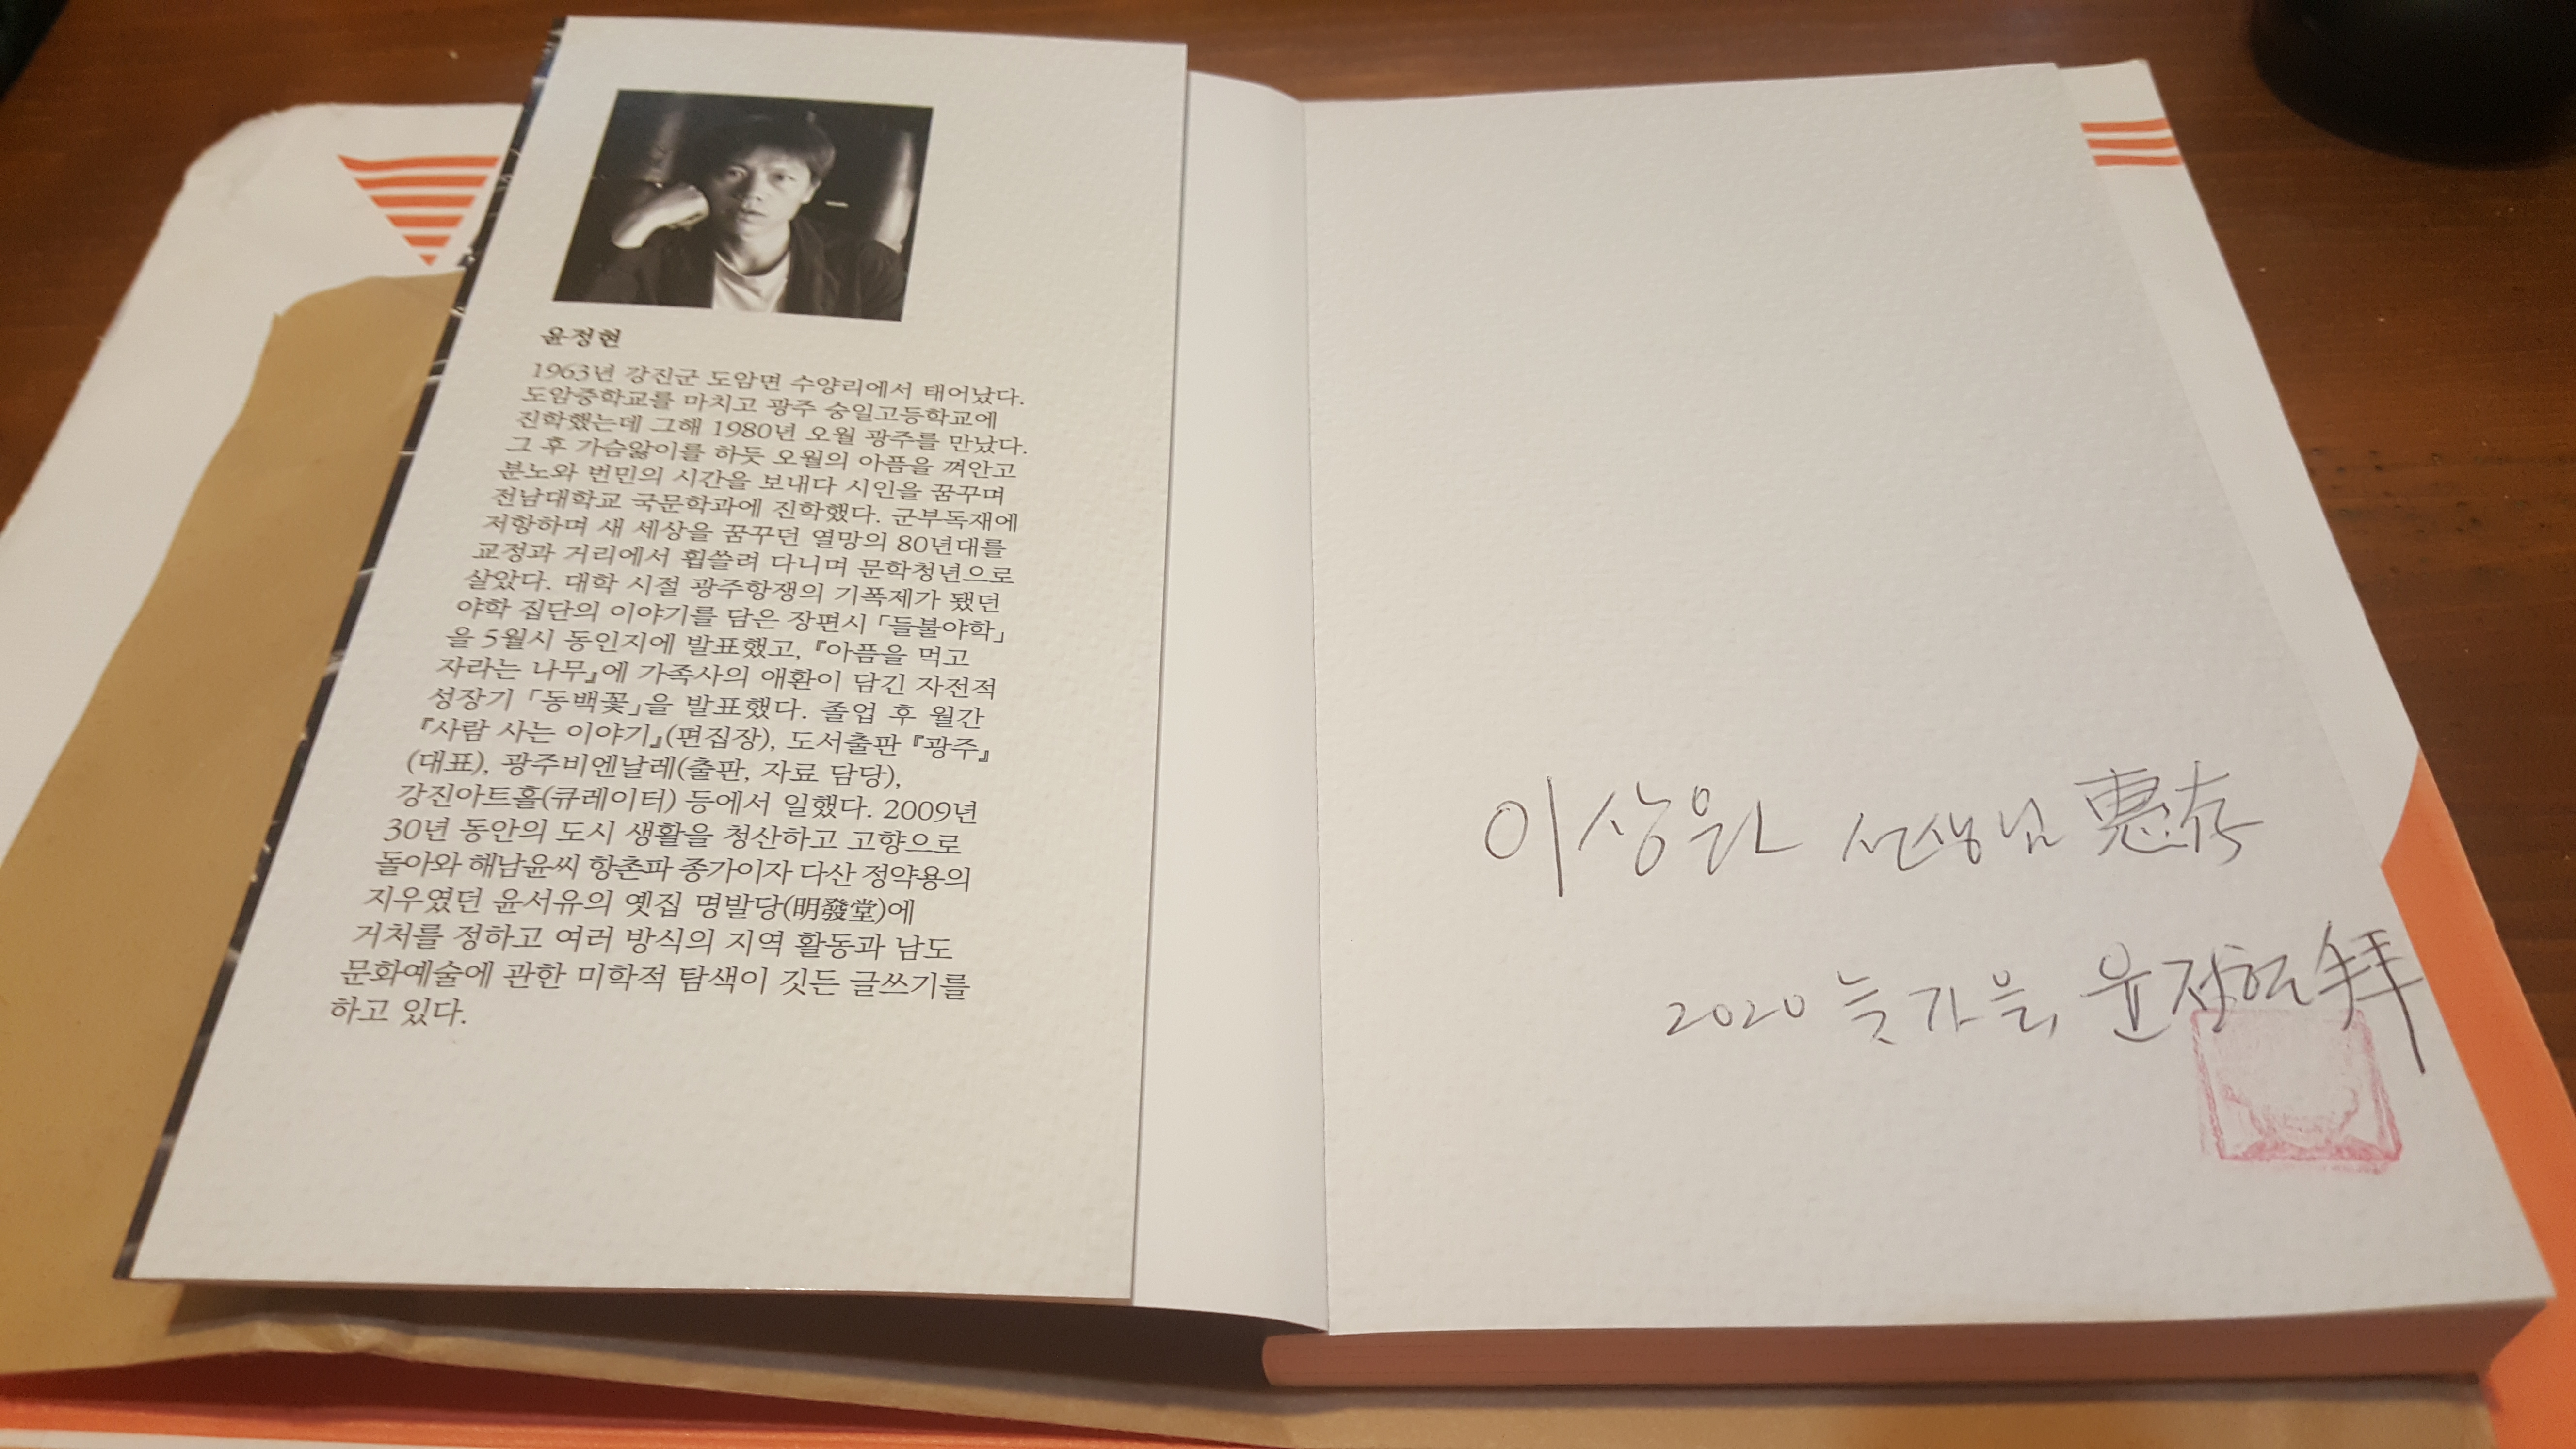 윤정현
1963년 강진군 도암면 수양리에서 태어났다.
도암중학교를 마치고 광주 숭일고등학교에
진학했는데 그해 1980년 오월 광주를 만났다.
그 후 가슴앓이를 하듯 오월의 아픔을 껴안고
분노와 번민의 시간을 보내다 시인을 꿈꾸며
전남대학교 국문학과에 진학했다. 군부독재에
저항하며 새 세상을 꿈꾸던 열망의 80년대를
교정과 거리에서 휩쓸려 다니며 문학청년으로
살았다. 대학 시절 광주항쟁의 기폭제가 됐던
야학 집단의 이야기를 담은 장편시 「들불야학」
을 5월시 동인지에 발표했고, 『아픔을 먹고
자라는 나무』에 가족사의 애환이 담긴 자전적
성장기 「동백꽃」을 발표했다. 졸업 후 월간
『사람 사는 이야기』(편집장), 도서출판 『광주』
(대표), 광주비엔날레(출판, 자료 담당),
강진아트홀(큐레이터) 등에서 일했다. 2009년
30년 동안의 도시 생활을 청산하고 고향으로
돌아와 해남윤씨 항촌파 종가이자 다산 정약용의
지우였던 윤서유의 옛집 명발당(明發堂)에
거처를 정하고 여러 방식의 지역 활동과 남도
문화예술에 관한 미학적 탐색이 깃든 글쓰기를
하고 있다.
이상원 선생님 惠存
2020 늦가을, 윤정현 拜